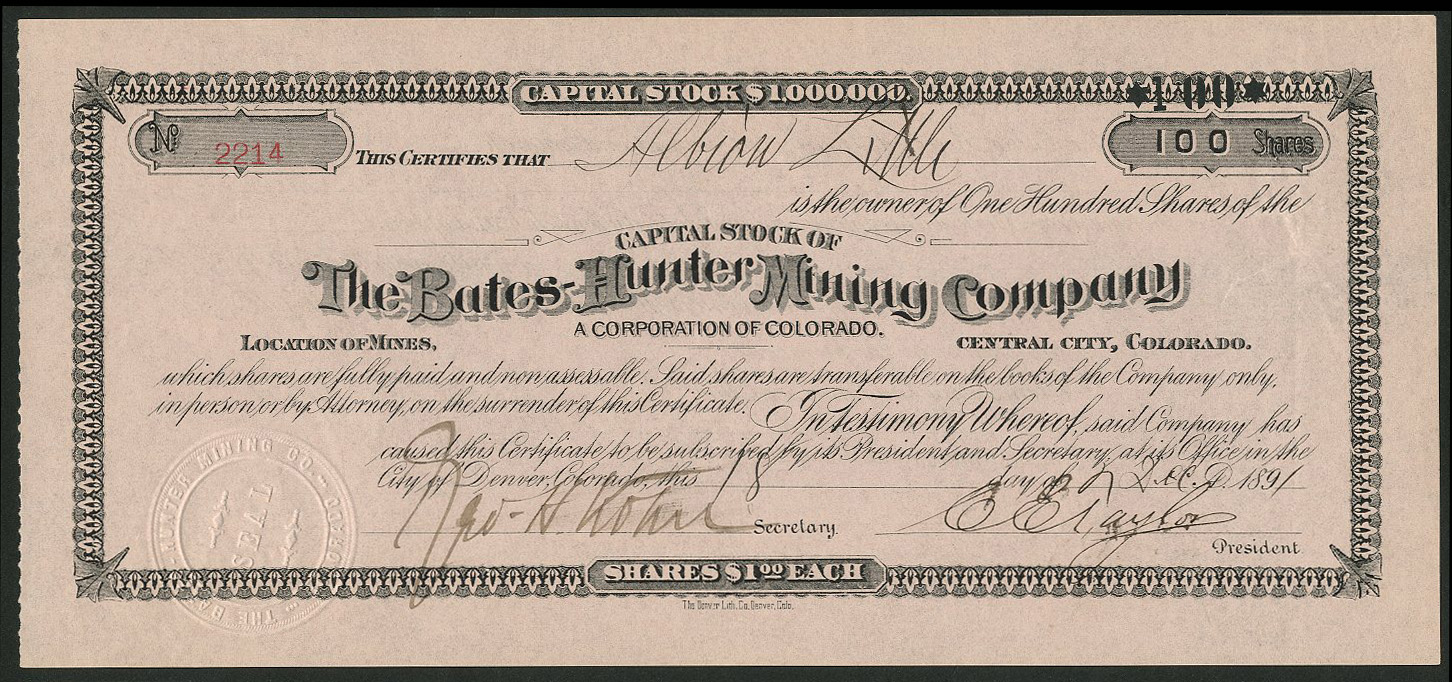 CAPITAL STOCK $1,000,000.
*100*
No 2214
100 Shares
THIS CERTIFIES THAT Albion Little
is the owner of One Hundred Shares of the
CAPITAL STOCK OF
The Bates-Hunter Mining Company
A CORPORATION OF COLORADO.
LOCATION OF MINES, CENTRAL CITY, COLORADO.
which shares are fully paid and non assessable. Said shares are transferable on the books of the Company only,
in person or by Attorney, on the surrender of this Certificate. In Testimony Whereof, said Company has
caused this Certificate to be subscribed by its President and Secretary, at its Office in the
City of Denver, Colorado, this 18 day of Dec. A.D. 1891
Geo. H. Kohn Secretary.
E E Taylor
President.
SHARES $1.00 EACH
The Denver Lith. Co. Denver, Colo.
HUNTER MINING CO. COLORADO
SEAL
THE BA